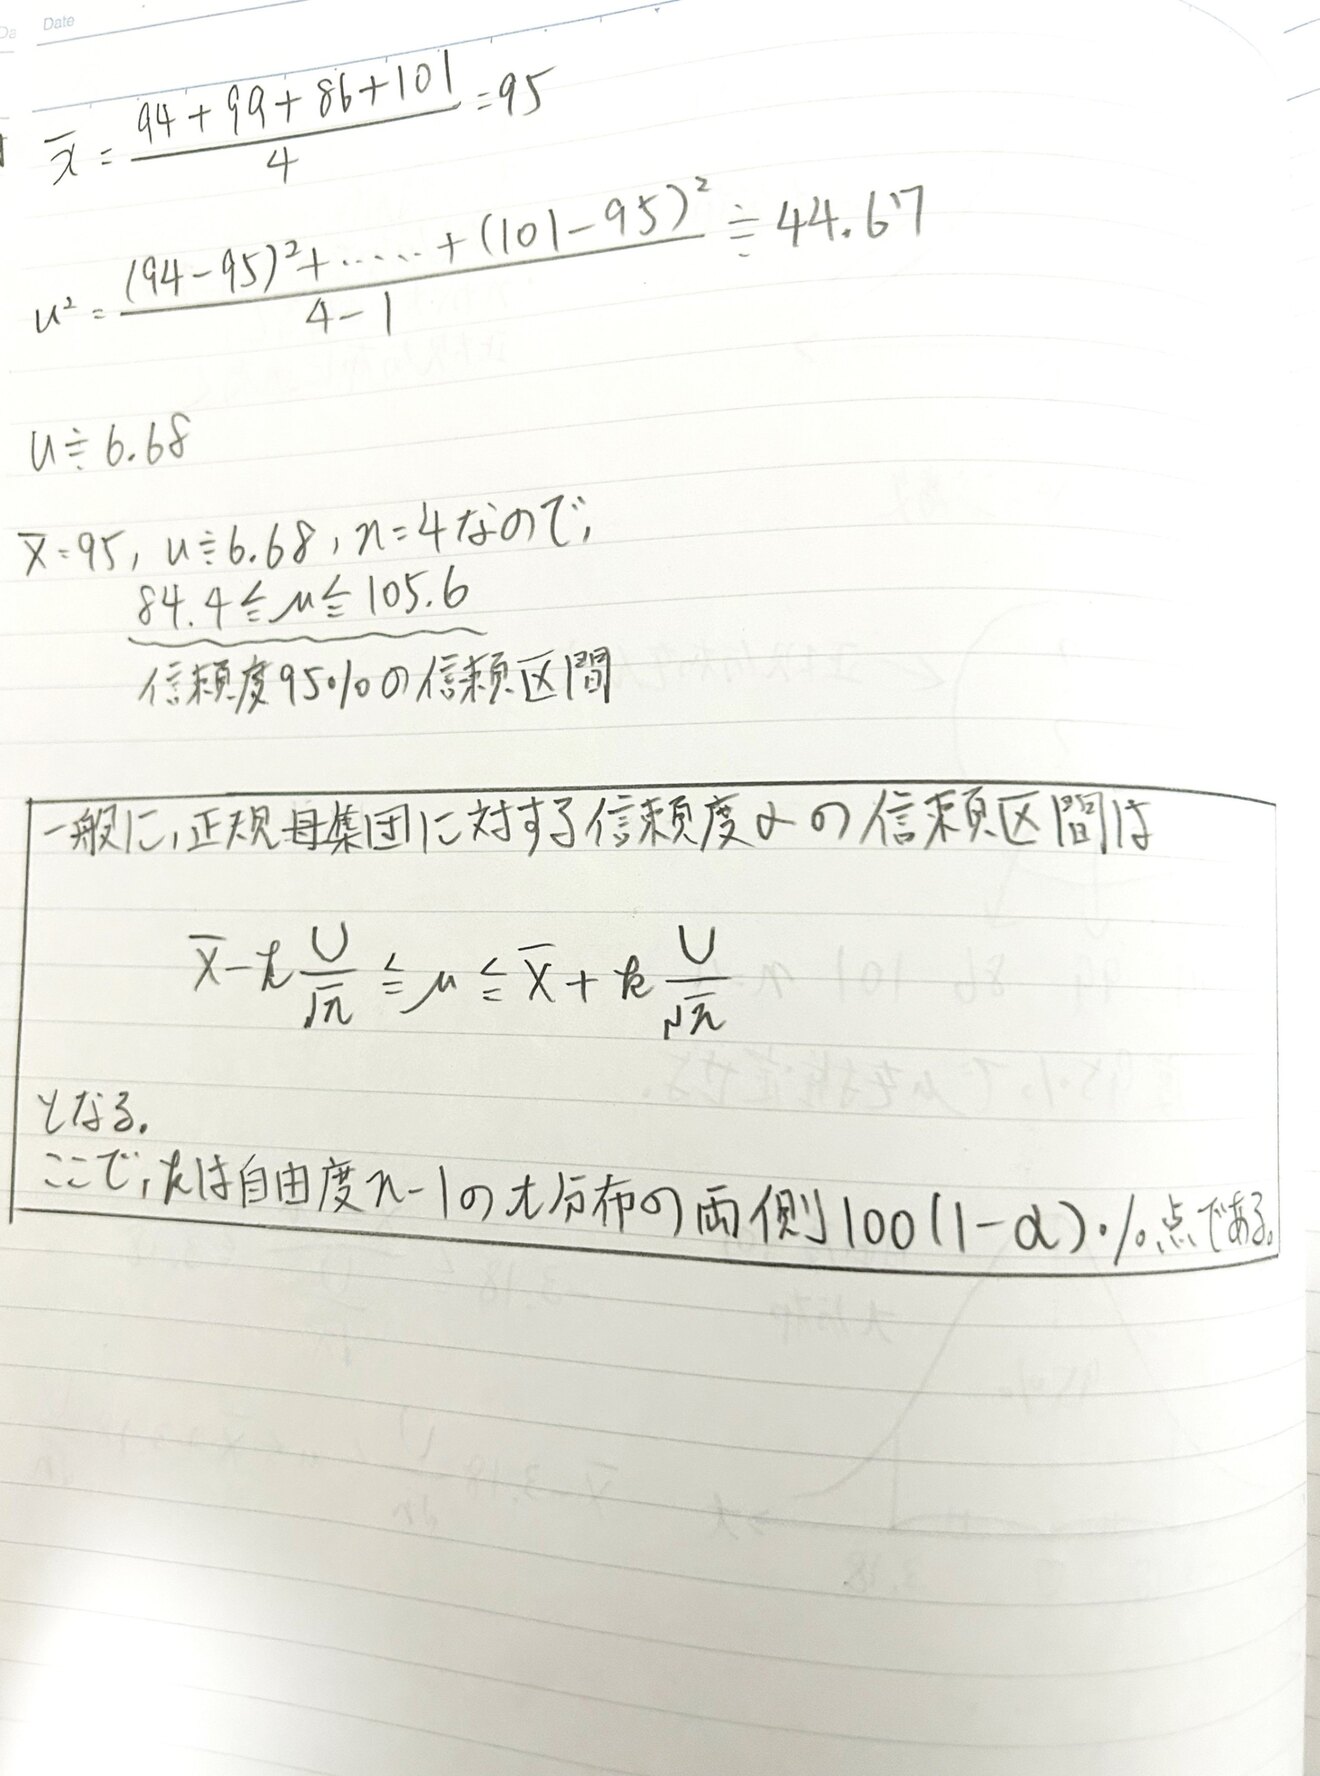 Date
x̄ = (94+99+86+101)/4 = 95
u² = ((94-95)²+‥‥‥+(101-95)²)/(4-1) ≒ 44.67
u≒6.68
x̄=95, u≒6.68, n=4なので,
84.4≦μ≦105.6
信頼度95%の信頼区間
一般に,正規母集団に対する信頼度αの信頼区間は
x̄-k U/√n ≦ μ ≦ x̄+k U/√n
となる.
ここで,kは自由度n-1のt分布の両側100(1-α)%点である.